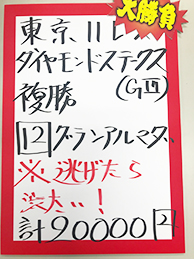 大勝負
東京11レース
ダイヤモンドステークス
複勝 (GⅢ)
12 グランアルマダ
※逃げたら
渋太い!
計20000円